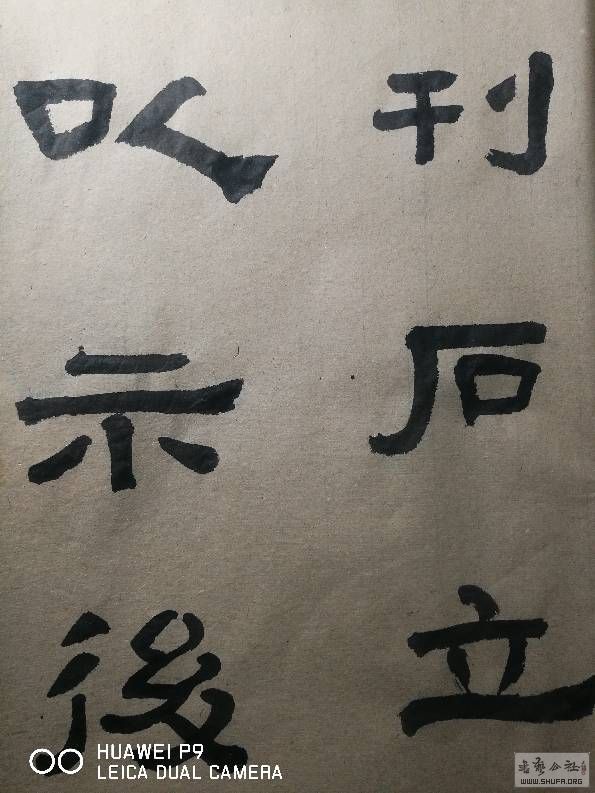 刊石立
以示後
HUAWEI P9
LEICA DUAL CAMERA
書藝公社
WWW.SHUFA.ORG